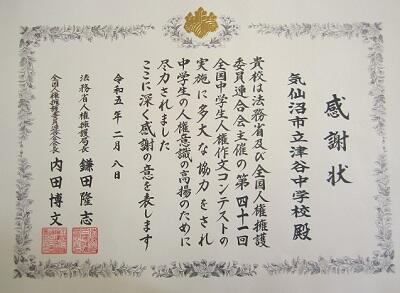 感謝状
気仙沼市立津谷中学校 殿
貴校は法務省及び全国人権擁護
委員連合会主催の第四十一回
全国中学生人権作文コンテストの
実施に多大な協力をされ
中学生の人権意識の高揚のために
尽力されました
ここに深く感謝の意を表します
令和五年二月八日
法務省人権擁護局長 鎌田隆志
全国人権擁護委員連合会会長 内田博文